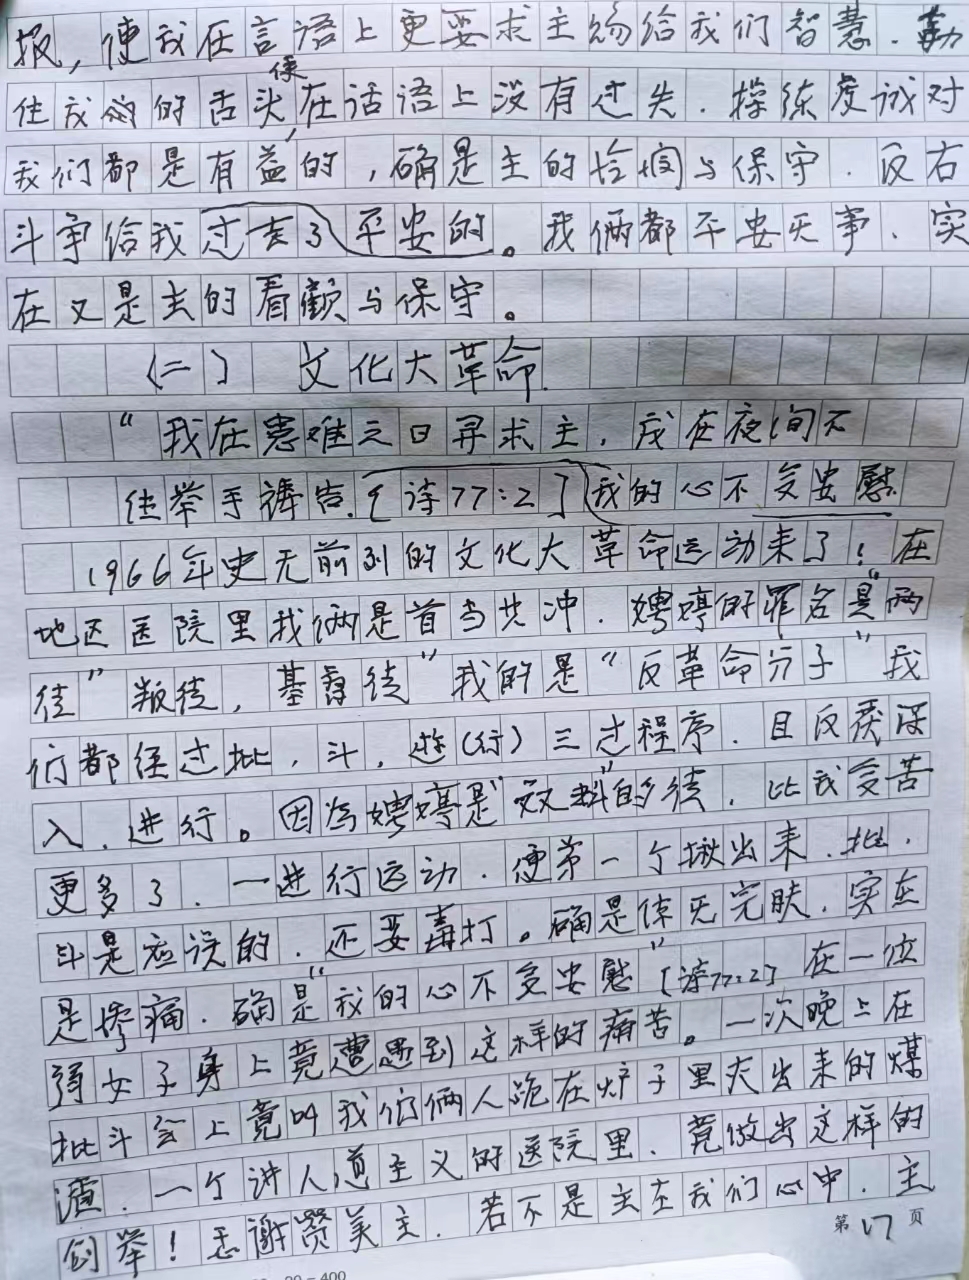 报，使我在言语上更要求主赐给我们智慧．勒
住我的的舌头使，在话语上没有过失．操练虔诚对
我们都是有益的，确是主的恰悯与保守．反右
斗争给我过去了平安的。我俩都平安无事．实
在又是主的看顾与保守。
（二） 文化大革命．
“我在患难之日寻求主，我在夜间不
住举手祷告．[诗77:2]我的心不受安慰
1966年史无前列的文化大革命运动来了！在
地区医院里我俩是首当其冲．娉婷的罪名是“两
徒”叛徒，基督徒”我的是“反革命分子”我
们都经过批，斗，游（行）三过程序．且反复深
入．进行。因为娉婷是“双料”的徒．比我受苦
更多了．一进行运动．便第一个揪出来．批．
斗是应该的．还要毒打。确是体无完肤．实在
是惨痛．确是“我的心不受安慰”[诗77:2]在一位
弱女子身上竟遭遇到这样的痛苦。一次晚上在
批斗会上竟叫我们俩人跪在炉子里夹出来的煤
渣．一个讲人道主义的医院里．竟做出这样的
创举！感谢赞美主．若不是主在我们心中．主
第17页
20－400